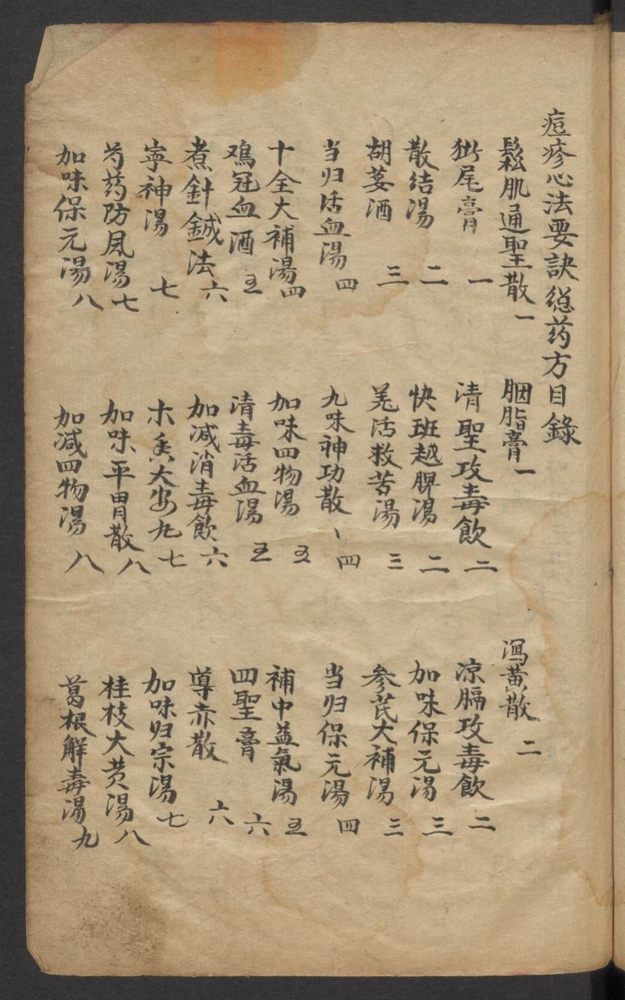 痘疹心法要訣总药方目錄
鬆肌通聖散一 胭脂膏一 瀉黄散二
猘尾膏一 清聖攻毒飲二 凉膈攻毒飲二
散结湯二 快班越脾湯二 加味保元湯三
胡荽酒三 羌活救苦湯三 参芪大補湯三
当归活血湯四 九味神功散、四 当归保元湯四
十全大補湯四 加味四物湯五 補中益氣湯五
鷄冠血酒五 清毒活血湯五 四聖膏六
煮針鍼法六 加减消毒飲六 導赤散六
寧神湯七 木香大安丸七 加味归宗湯七
芍药防风湯七 加味平胃散八 桂枝大黄湯八
加味保元湯八 加减四物湯八 葛根解毒湯九